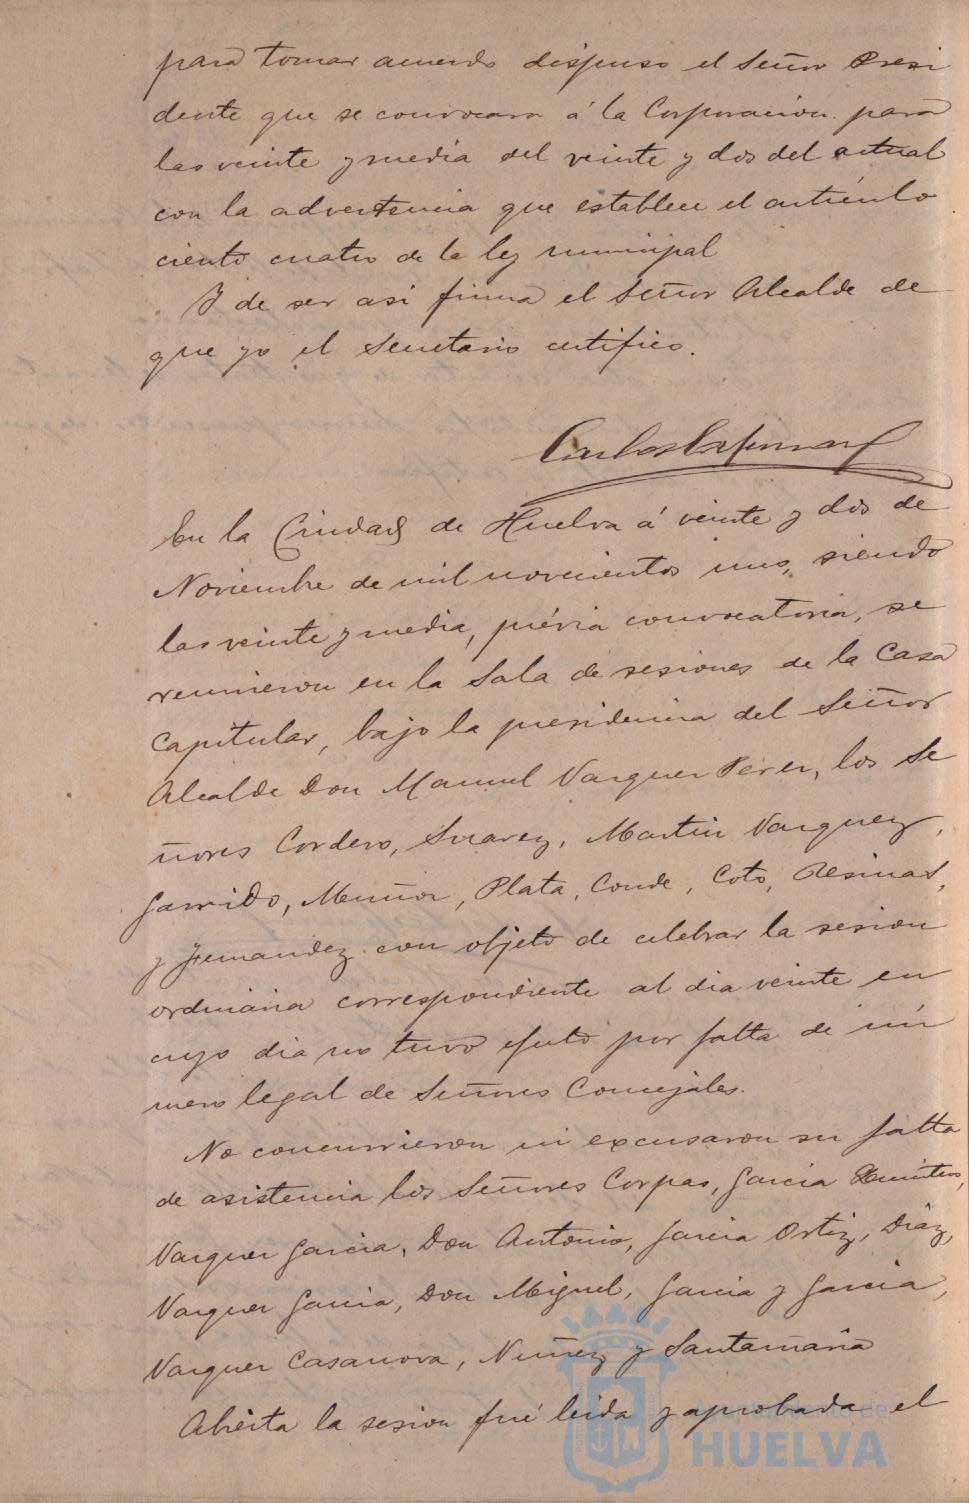 para tomar acuerdo dispuso el Señor Presi
dente que se convocara á la Corporacion para
las veinte y media del veinte y dos del actual
con la advertencia que establece el artículo
ciento cuatro de la ley municipal
Y de ser asi firma el Señor Alcalde de
que yo el Secretario certifico.
Carlos
En la Ciudad de Huelva á veinte y dos de
Noviembre de mil novecientos uno, siendo
las veinte y media, prévia convocatoria, se
reunieron en la Sala de sesiones de la Casa
Capitular, bajo la presidencia del Señor
Alcalde Don Manuel Vazquez Perez, los Se
ñores Cordero, Suarez, Martin Vazquez,
Garrido, Muñoz, Plata, Conde, Coto, Resinas,
y Fernandez con objeto de celebrar la sesion
ordinaria correspondiente al dia veinte en
cuyo dia no tuvo efecto por falta de nú
mero legal de Señores Concejales.
No concurrieron ni excusaron su falta
de asistencia los Señores Corpas, Garcia Quintero,
Vazquez Garcia, Don Antonio, Garcia Ortiz, Diaz,
Vazquez Garcia, Don Miguel, Garcia y Garcia,
Vazquez Casanova, Nuñez y Santamaria
Abierta la sesion fué leida y aprobada el
Ayuntamiento de
HUELVA